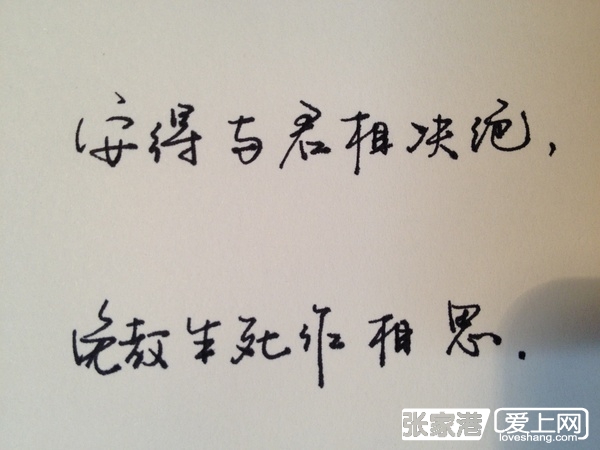 安得与君相决绝，
免教生死作相思.
张家港 爱上网
loveshang.com